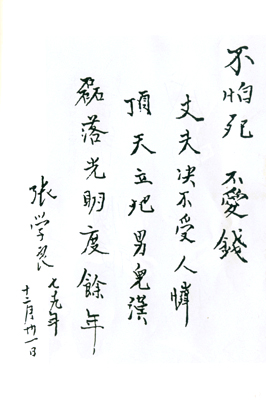 不怕死 不愛錢
丈夫决不受人憐
頂天立地男兒漢
磊落光明度餘年
張学良
七九年
十二月廿一日